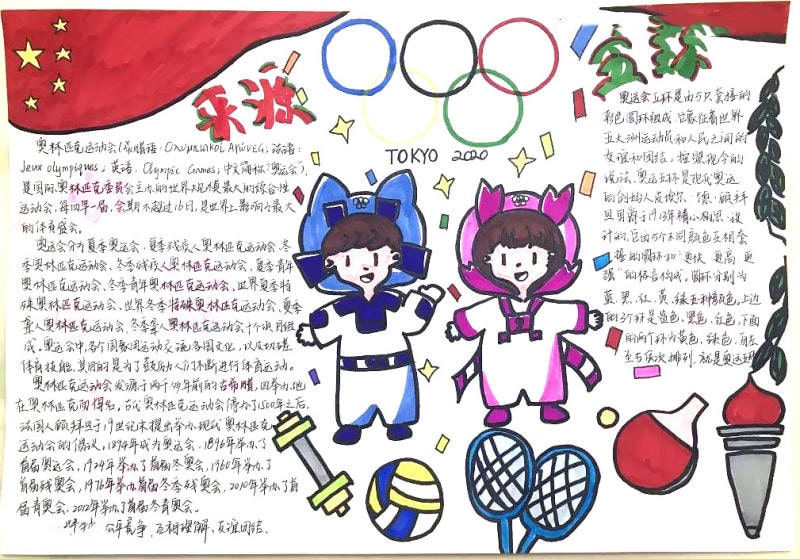 来源
奥林匹克运动会(希腊语:Ολυμπιακοί Αγώνες;法语:
Jeux olympiques;英语:Olympic Games;中文简称"奥运会"),
是国际奥林匹克委员会主办的世界规模最大的综合性
运动会,每四年一届,会期不超过16日,是世界上影响力最大
的体育盛会。
奥运会分为夏季奥运会、夏季残疾人奥林匹克运动会、冬
季奥林匹克运动会、冬季残疾人奥林匹克运动会、夏季青年
奥林匹克运动会、冬季青年奥林匹克运动会、世界夏季特
殊奥林匹克运动会、世界冬季特殊奥林匹克运动会、夏季
聋人奥林匹克运动会、冬季聋人奥林匹克运动会十个项目组
成。奥运会中,各个国家用运动交流各国文化,以及切磋
体育技能,其目的是为了鼓励人们不断进行体育运动。
奥林匹克运动会发源于两千多年前的古希腊,因举办地
在奥林匹克而得名。古代奥林匹克运动会停办了1500年之后,
法国人顾拜旦于19世纪末提出举办现代奥林匹克
运动会的倡议,1894年成为奥运会,1896年举办了
首届奥运会,1924年举办了首届冬奥会,1960年举办了
首届残奥会,1976年举办首届冬季残奥会,2010年举办了首
届青奥会,2012年举办了首届冬青奥会。
公平竞争、互相理解、友谊团结。
TOKYO 2020
五环
奥运会五环是由5只套接的
彩色圆环组成,它象征着世界
五大洲运动员和人民之间的
友谊和团结。
说法,奥运五环是现代奥运
的创始人皮埃尔·德·顾拜
旦男爵于1913年精心构思设
计的,它由5个不同颜色互相套
接的圆环和"更快、更高、更
强"的格言构成。圆环分别为
蓝、黑、红、黄、绿五种颜色,上边
的3个环是蓝色、黑色、红色,下面
的两个环为黄色、绿色,
至右依次排列,就是奥运五环